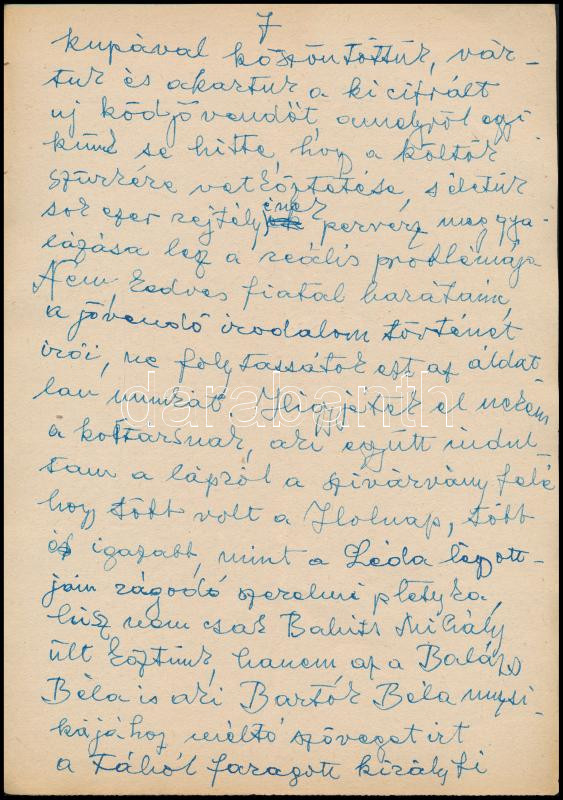 7
kupával köszöntöttük, vár-
tuk és akartuk a kicifrált
uj ködjövendőt amelyről egyi
künk se hitte, hogy a költők
szürkére vetkőztetése, s életük
sok ezer rejtélyének perverz meggya-
lázása lesz a reális problémája
Nem, kedves fiatal barátaim,
a jövendő irodalom történet
irói, ne folytassátok ezt az áldat
lan munkát. Higyjétek el nekem
a kortársnak, aki együtt indul-
tam a lápról a szivárvány felé
hogy több volt a Holnap, több
és igazabb, mint a Léda
jain rágodó szerelmi pletyka,
hisz nem csak Babits Mihály
ült köztünk, hanem az a Balázs
Béla is aki Bartók Béla muzsi-
kájához méltó szöveget irt
a Fából faragott királyfi
darabanth